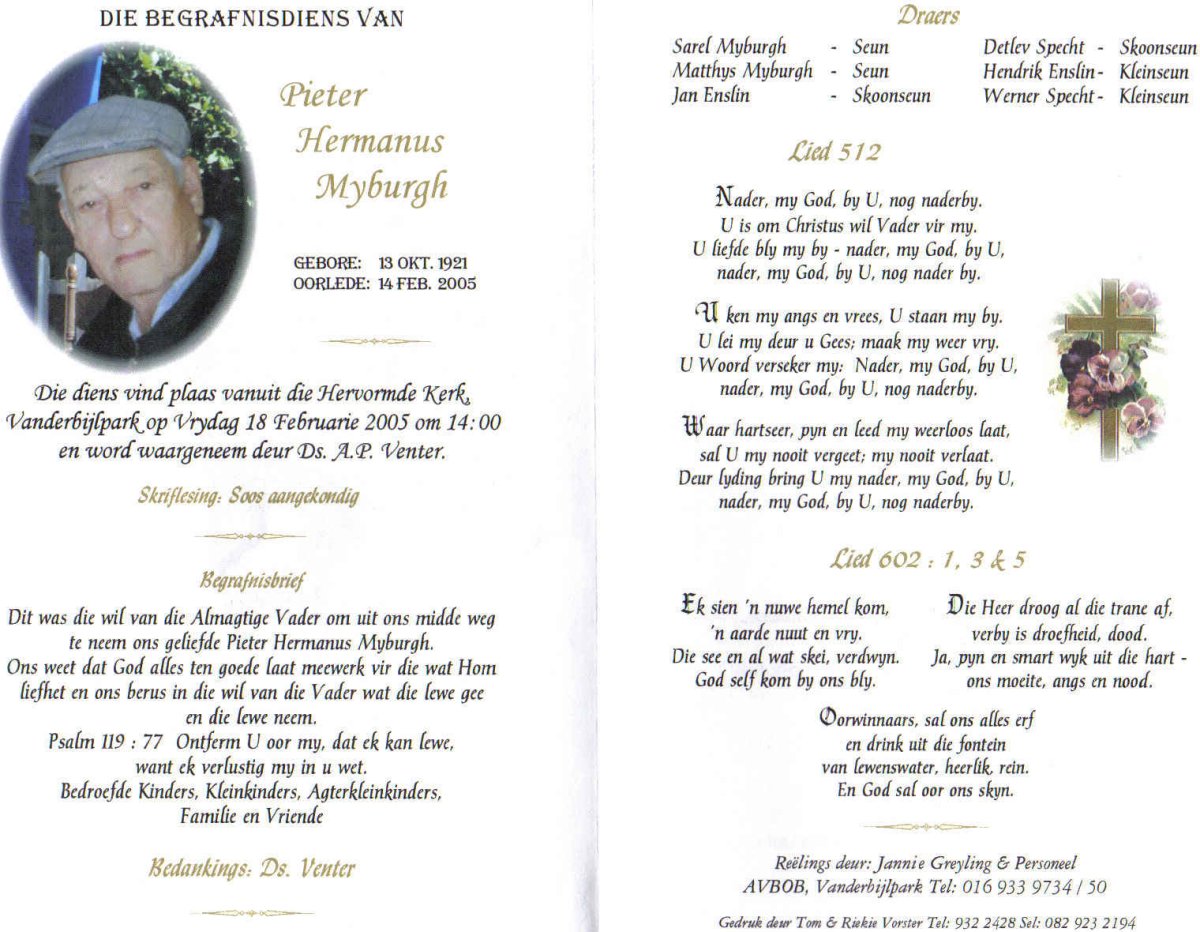 DIE BEGRAFNISDIENS VAN
Pieter
Hermanus
Myburgh
GEBORE: 13 OKT. 1921
OORLEDE: 14 FEB. 2005
Die diens vind plaas vanuit die Hervormde Kerk,
Vanderbijlpark op Vrydag 18 Februarie 2005 om 14:00
en word waargeneem deur Ds. A.P. Venter.
Skriflesing: Soos aangekondig
Begrafnisbrief
Dit was die wil van die Almagtige Vader om uit ons midde weg
te neem ons geliefde Pieter Hermanus Myburgh.
Ons weet dat God alles ten goede laat meewerk vir die wat Hom
liefhet en ons berus in die wil van die Vader wat die lewe gee
en die lewe neem.
Psalm 119 : 77 Ontferm U oor my, dat ek kan lewe,
want ek verlustig my in u wet.
Bedroefde Kinders, Kleinkinders, Agterkleinkinders,
Familie en Vriende
Bedankings: Ds. Venter
Draers
Sarel Myburgh - Seun Detlev Specht - Skoonseun
Matthys Myburgh - Seun Hendrik Enslin- Kleinseun
Jan Enslin - Skoonseun Werner Specht - Kleinseun
Lied 512
Nader, my God, by U, nog naderby.
U is om Christus wil Vader vir my.
U liefde bly my by - nader, my God, by U,
nader, my God, by U, nog nader by.
U ken my angs en vrees, U staan my by.
U lei my deur u Gees; maak my weer vry.
U Woord verseker my: Nader, my God, by U,
nader, my God, by U, nog naderby.
Waar hartseer, pyn en leed my weerloos laat,
sal U my nooit vergeet; my nooit verlaat.
Deur lyding bring U my nader, my God, by U,
nader, my God, by U, nog naderby.
Lied 602 : 1, 3 & 5
Ek sien 'n nuwe hemel kom,
'n aarde nuut en vry.
Die see en al wat skei, verdwyn.
God self kom by ons bly.
Die Heer droog al die trane af,
verby is droefheid, dood.
Ja, pyn en smart wyk uit die hart -
ons moeite, angs en nood.
Oorwinnaars, sal ons alles erf
en drink uit die fontein
van lewenswater, heerlik, rein.
En God sal oor ons skyn.
Reëlings deur: Jannie Greyling & Personeel
AVBOB, Vanderbijlpark Tel: 016 933 9734 / 50
Gedruk deur Tom & Riekie Vorster Tel: 932 2428 Sel: 082 923 2194